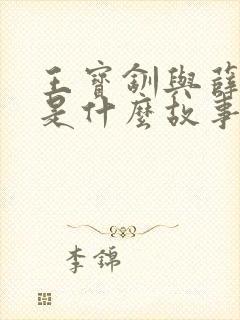 王寶釧與薛
是什麼故事
李錦